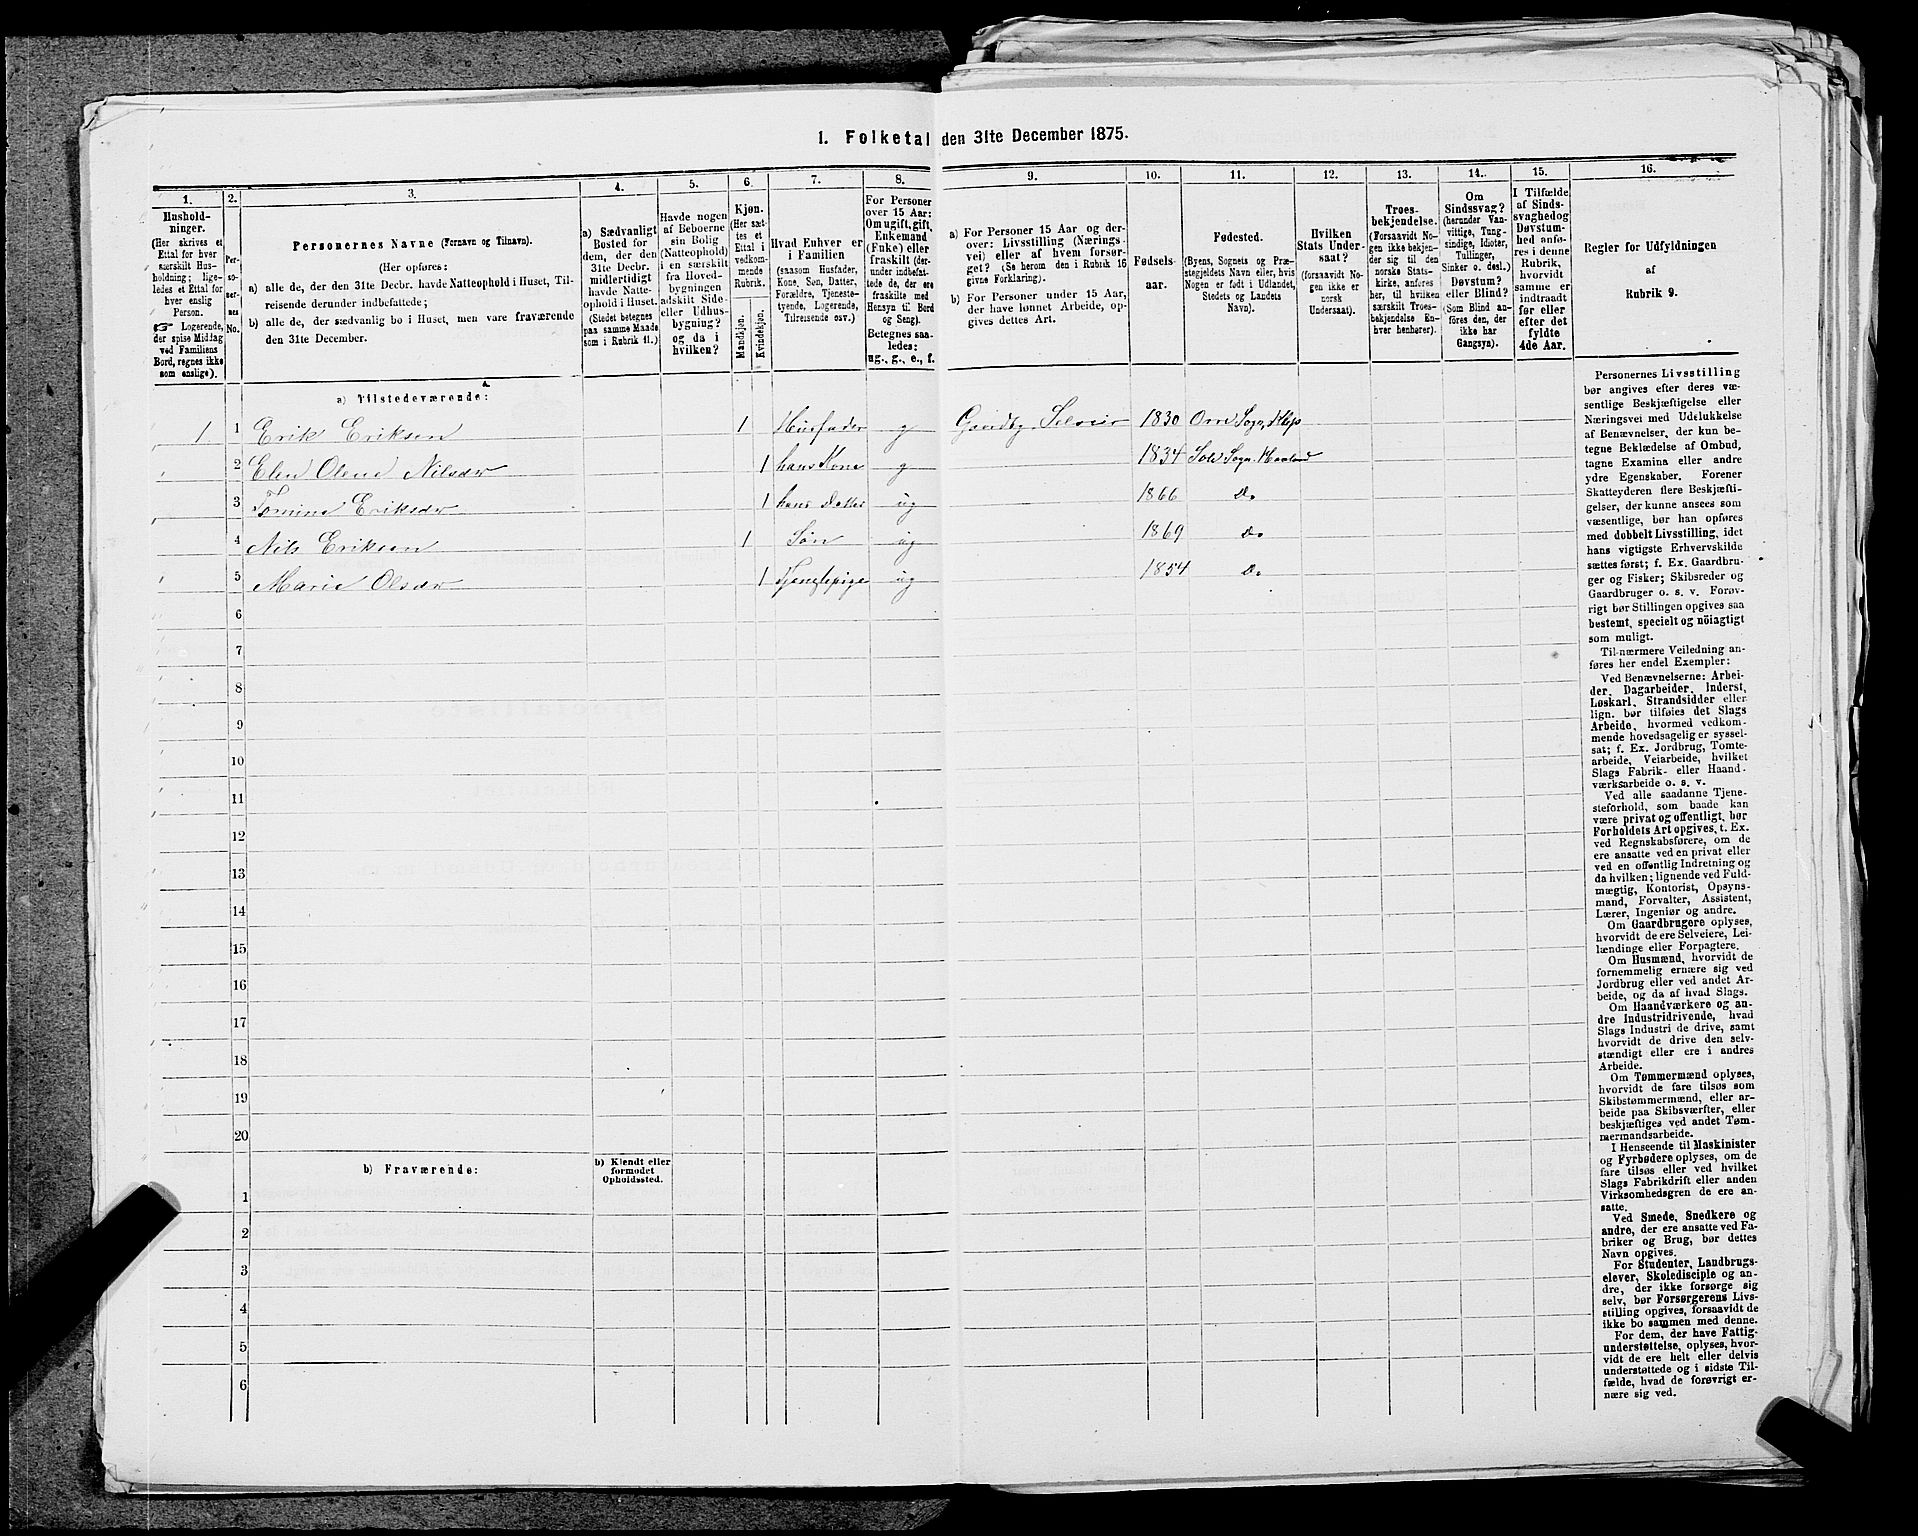 1. Folketal den 31te December 1875.
1.
Hushold-
ninger.
(Her skrives et
Ettal for hver
særskilt Hus-
holdning; lige-
ledes et Ettal for
hver enslig
Person.
☞ Logerende,
der spise Middag
ved Familiens
Bord, regnes ikke
som enslige).
2.
Per-
so-
ner-
nes
No.
3.
Personernes Navne (Fornavn og Tilnavn).
(Her opføres:
a) alle de, der den 31te Decbr. havde Natteophold i Huset, Til-
reisende derunder indbefattede;
b) alle de, der sædvanlig bo i Huset, men vare fraværende
den 31te December.
4.
a) Sædvanligt
Bosted for
dem, der den
31te Decbr.
midlertidigt
havde Natte-
ophold i Huset.
(Stedet betegnes
paa samme Maade
som i Rubrik 11.)
5.
Havde nogen
af Beboerne
sin Bolig
(Natteophold)
i en særskilt
fra Hoved-
bygningen
adskilt Side-
eller Udhus-
bygning?
og da i
hvilken?
6.
Kjøn.
(Her sæt-
tes et
Ettal i
vedkom-
mende
Rubrik.
Mandkjøn.
Kvindekjøn.
7.
Hvad Enhver er
i Familien
(saasom Husfader,
Kone, Søn, Datter,
Forældre, Tjeneste-
tyende, Logerende,
Tilreisende osv.)
8.
For Personer
over 15 Aar:
Om ugift, gift,
Enkemand
(Enke) eller
fraskilt (der-
under indbefat-
tede de, der ere
fraskilte med
Hensyn til Bord
og Seng).
Betegnes saa-
ledes:
ug., g., e., f.
9.
a) For Personer 15 Aar og der-
over: Livsstilling (Nærings-
vei) eller af hvem forsør-
get? (Se herom den i Rubrik 16
givne Forklaring).
b) For Personer under 15 Aar,
der have lønnet Arbeide, op-
gives dettes Art.
10.
Fødsels-
aar.
11.
Fødested.
(Byens, Sognets og Præ-
stegjeldets Navn eller, hvis
Nogen er født i Udlandet,
Stedets og Landets
Navn).
12.
Hvilken
Stats Under-
saat?
(forsaavidt No-
gen ikke er
norsk
Undersaat).
13.
Troes-
bekjendelse.
(Forsaavidt No-
gen ikke bekjen-
der sig til den
norske Stats-
kirke, anføres
her, til hvilken
særskilt Troes-
bekjendelse En-
hver henhører).
14.
Om
Sindssvag?
(herunder Van-
vittige, Tung-
sindige, Idioter,
Tullinger,
Sinker o. desl.)
Døvstum?
eller Blind?
(Som Blind an-
føres den, der
ikke har
Gangsyn).
15.
I Tilfælde
af Sinds-
svaghedog
Døvstum-
hed anfø-
res i denne
Rubrik,
hvorvidt
samme er
indtraadt
før eller
efter det
fyldte
4de Aar.
16.
Regler for Udfyldningen
af
Rubrik 9.
a) Tilstedeværende:
1 1 Erik Eriksen 1 Husfader g Gaardbr. Selveier 1830 Orre Sogn, Klep
2 Elen Olene Nilsdr 1 hans Kone g 1834 Sole Sogn. Haaland
3 Tomine Eriksdr 1 hans Datter ug 1866 Do
4 Nils Eriksen 1 Søn ug 1869 Do
5 Marie Olsdr 1 Tjenestepige ug 1854 Do
6
7
8
9
10
11
12
13
14
15
16
17
18
19
20
b) Fraværende:
b) Kjendt eller
formodet
Opholdssted.
1
2
3
4
5
6
Personernes Livsstilling
bør angives efter deres væ-
sentlige Beskjæftigelse eller
Næringsvei med Udelukkelse
af Benævnelser, der kun be-
tegne Beklædelse af Ombud,
tagne Examina eller andre
ydre Egenskaber. Forener
Skatteyderen flere Beskjæfti-
gelser, der kunne ansees som
væsentlige, bør han opføres
med dobbelt Livsstilling, idet
hans vigtigste Erhvervskilde
sættes først; f. Ex. Gaardbru-
ger og Fisker; Skibsreder og
Gaardbruger o. s. v. Forøv-
rigt bør Stillingen opgives saa
bestemt, specielt og nöiagtigt
som muligt.
Til nærmere Veiledning an-
føres her endel Exempler:
Ved Benævnelserne: Arbei-
der, Dagarbeider, Inderst,
Løskarl, Strandsidder eller
lign. bør tilføies det Slags
Arbeide, hvormed vedkom-
mende hovedsagelig er syssel-
sat; f. Ex. Jordbrug, Tomte-
arbeide, Veiarbeide, hvilket
Slags Fabrik- eller Haand-
værksarbeide o. s. v.
Ved alle saadanne Tjene-
steforhold, som baade kan
være privat og offentligt, bør
Forholdets Art opgives, t. Ex.
ved Regnskabsførere, om de
ere ansatte ved en privat eller
ved en offentlig Indretning og
da hvilken; lignende ved Fuld-
mægtig, Kontorist, Opsyns-
mand, Forvalter, Assistent,
Lærer, Ingeniør og andre.
Om Gaardbrugere oplyses,
hvorvidt de ere Selveiere, Lei-
lændinge eller Forpagtere.
Om Husmænd, hvorvidt de
fornemmelig ernære sig ved
Jordbrug eller ved andet Ar-
beide, og da af hvad Slags.
Om Haandværkere og an-
dre Industridrivende, hvad
Slags Industri de drive, samt
hvorvidt de drive den selv-
stændigt eller ere i andres
Arbeide.
Om Tømmermænd oplyses,
hvorvidt de fare tilsøs som
Skibstømmermænd, eller ar-
beide paa Skibsværfter, eller
beskjæftiges ved andet Tøm-
mermandsarbeide.
I Henseende til Maskinister
og Fyrbødere oplyses, om de
fare tilsøs eller ved hvilket
Slags Fabrikdrift eller anden
Virksomhedsgren de ere an-
satte.
Ved Smede, Snedkere og
andre, der ere ansatte ved Fa-
briker og Brug, bør dettes
Navn opgives.
For Studenter, Landbrugs-
elever, Skoledisciple og an-
dre, der ikke forsørge sig
selv, bør Forsørgerens Livs-
stilling opgives, forsaavidt de
ikke bo sammen med denne.
For dem, der have Fattig-
understøttelse, oplyses, hvor-
vidt de ere helt eller delvis
understøttede og i sidste Til-
fælde, hvad de forøvrigt er-
nære sig ved.